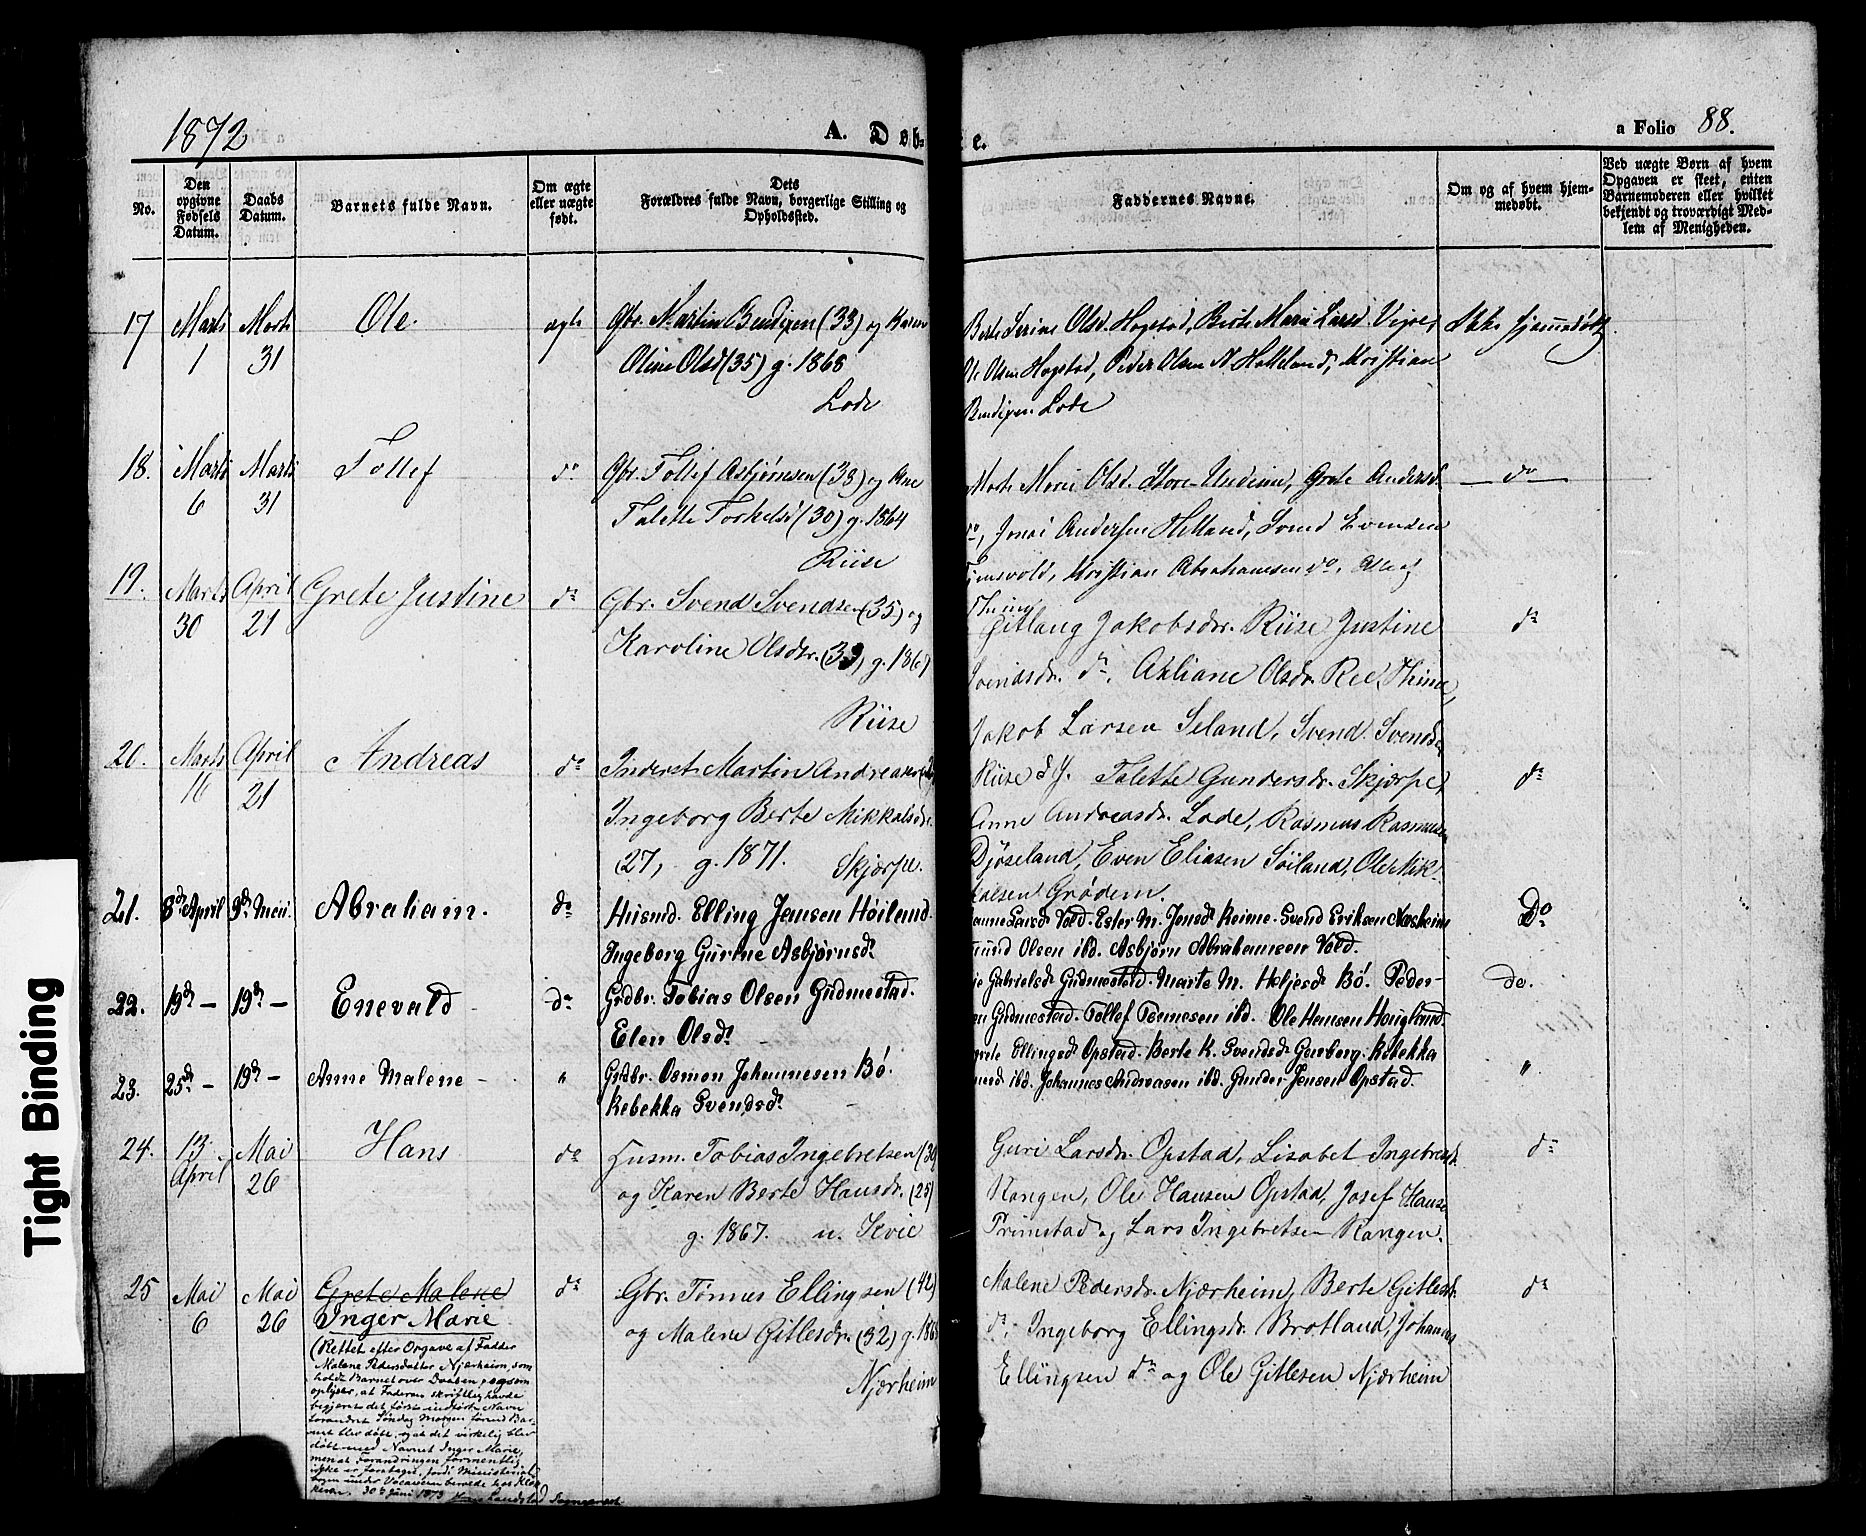 1872
A. Døb-
e.
a Folio 88.
No.
Den opgivne Fødsels Datum.
Daabs Datum.
Barnets fulde Navn.
Om ægte eller uægte født.
Dets Forældres fulde Navn, borgerlige Stilling og Opholdssted.
Faddernes Navne.
Om og af hvem hjemmedøbt.
Ved uægte Børn af hvem Opgaven er skeet, enten Barnemoderen eller hvilket bekjendt og troværdigt Medlem af Menigheden.
17 Marts 1 Marts 31 Ole ægte Gbr. Martin Bendixen (33) og Karen
Oline Olsd (35) g. 1868
Lode
Berte Serine Olsd. Hogstad, Berte Marie Larsd. Vigre,
Ole Olsen Hogstad, Peder Olsen N. Helleland, Kristian
Bendixen Lode
Ikke hjemmedøbt
18. Marts 6 Marts 31 Tollef do Gbr. Tollef Asbjørnsen (38) og Ane
Talette Torkelsd (30) g. 1864
Riise
Marte Marie Olsd. Store-Undeim, Grete Andersd.
do, Jonas Andersen Helland, Svend Evensen
Kristian Abrahamsen do,
do
19. Marts 30 April 21 Grete Justine do Gbr. Svend Svendsen (35) og
Karoline Olsdtr. (33) g. 186
Riise
Gitlaug Jakobsdr. Riise Justine
Svendsdr. do, Axliane Olsdr. Ree, Thime,
Jakob Larsen Seland, Svend Svends.
Riise d. Y.
do
20. Marts 16 April 21 Andreas do Inderst Martin Andreas
Ingeborg Berte Mikkalsdr.
27, g. 1871. Skjærpe.
Talette Gundersdr. Skjærpe,
Anne Andreasdr. Lode, Rasmus Rasmusen
Djøseland, Even Eliasen Søiland, Ole Mik-
kalsen Grødem.
do
21. 8de April 9de Mai. Abraham. do Husmd. Elling Jensen Høiland.
Ingeborg Gurine Asbjørnsdr
Larsd Vold. Ester M. Jonsdr Reime. Svend Eriksen Næsheim
Olsen ibd. Asbjørn Abrahamsen Vold.
Do
22. 19de – 19de – Enevald do Grdbr. Tobias Olsen Gudmestad.
Elen Olsdr
Gabrielsdr Gudmestad. Marte M. Heljesdr Bø. Peder
Gudmestad. Tollef Tønnesen ibd. Ole Hansen Haugland.
do.
23. 25de – 19de – Anne Malene – " Grdbr. Osmon Johannesen Bø.
Rebekka Svendsdr
Ellingsdr Opstad. Berte K. Svendsdr Garborg. Rebekka
ibd. Johannes Andreasen ibd. Gunder Jensen Opstad.
"
24. 13 April Mai 26 Hans do Husm. Tobias Ingebretsen (30)
og Karen Berte Hansdr. (25)
g. 1867. u. Kvie
Guri Larsdr. Opstad, Lisabet Ingebretsd.
Kongen, Ole Hansen Opstad, Josef Hansen
Primstad og Lars Ingebretsen Kangen.
do
25 Mai 6 Mai 26 Grete Malene
Inger Marie
do Gbr. Tønnes Ellingsen (42)
og Malene Gitlesdr. (32) g. 186
Njærheim
Malene Pedersdr. Njærheim, Berte Gitlesd.
do, Ingeborg Ellingsdr. Brotland, Johannes
Ellingsen do og Ole Gitlesen Njærheim
do
(Rettet efter Opgave af Fadder
Malene Pedersdatter Njærheim, som
holdt Barnet over Daaben, og som
oplyser, at Faderen skriftlig havde
begjæret det først indførte Navn
forandret Søndag Morgen førend Bar-
net blev døbt, og at det virkelig blev
døbt med Navnet Inger Marie,
men at Forandringen formentlig
ikke er foretaget, fordi Ministerial-
bogen under Vacancen beroede hos Klok-
keren. 30te Juni 1873 Landstad Sogneprest
Tight Binding